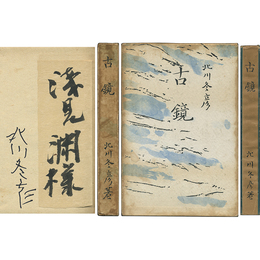 淺見淵様
北川冬彦
古鏡
北川冬彦著
北川冬彦
古鏡
古鏡
北川冬彦著